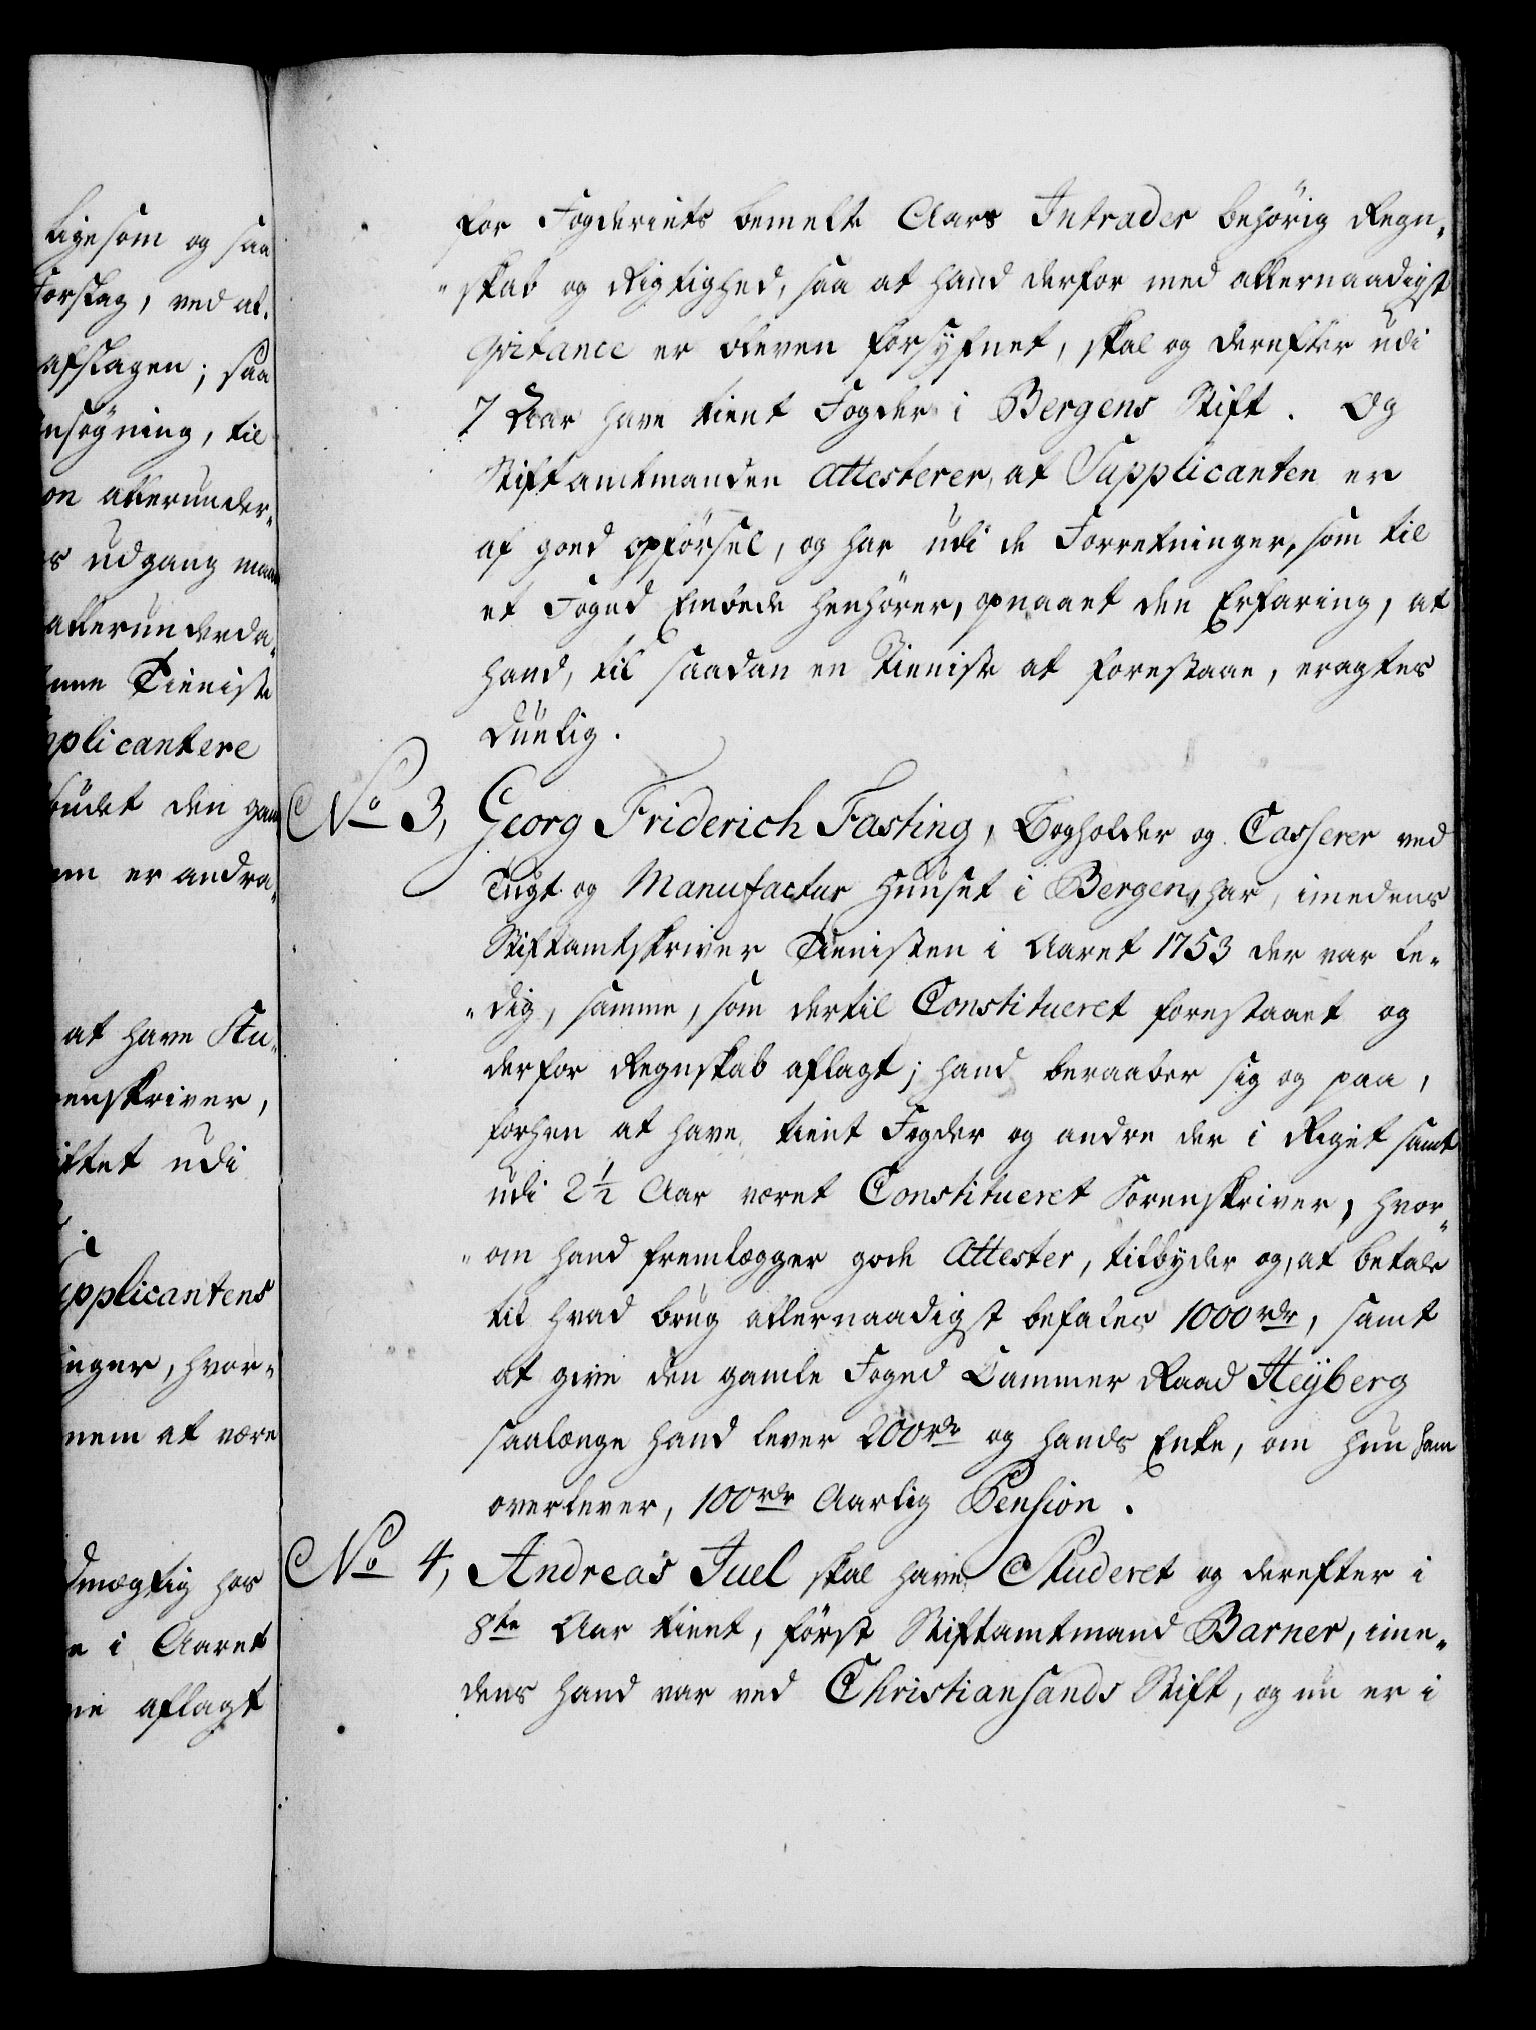 ligesom og saa
Forslag, ved at
afslagen; saa
nsøgning, til
on allerunder„
s udgang maa
allerunderda„
nne Tieniste
plicantere
budet den gam
nn er andra„
at have Stu„
renskriver,
iftet udi
pplicantens
inger, hvor„
nem at være
dmægtig hos
e i Aaret
ne aflagt
for Fogderiets bemelte Aars Intrader behørig Regn„
„skab og Rigtighed, saa at hand derfor med allernaadigst
Qvitance er bleven forsÿnet, skal og derefter udi
7 Aar have tient Fogder i Bergens Stift. Og
Stiftamtmanden Attesterer, at Supplicanten er
af goed opførsel, og har udi de Forretninger, som til
et Foged Embede henhører, opnaaet den Erfaring, at
hand, til saadan en Tieniste at forestaae, eragtes
duelig.
No 3, Georg Friderich Fasting, Bogholder og Casserer ved
Tugt og Manufactur Huuset i Bergen, har, imedens
Stiftamtskriver Tienisten i Aaret 1753 der var le„
„dig, samme, som dertil Constitueret forestaaet og
derfor Regnskab aflagt; hand beraaber sig og paa,
forhen at have tient Fogder og andre der i Riget samt
udi 2½ Aar været Constitueret Sorenskriver, hvor„
„om hand fremlægger gode Attester, tilbyder og, at betale
til hvad brug allernaadigst befales 1000 rdr, samt
at give den gamle Foged Cammer Raad Heÿberg
saalænge hand lever 200 rdr og hands Enke, om hun ham
overlever, 100 rdr Aarlig Pension.
No 4, Andreas Juel skal have Studeret og derefter i
8te Aar tient, først Stiftamtmand Barner, ime„
dens hand var ved Christiansands Stift, og nu er i